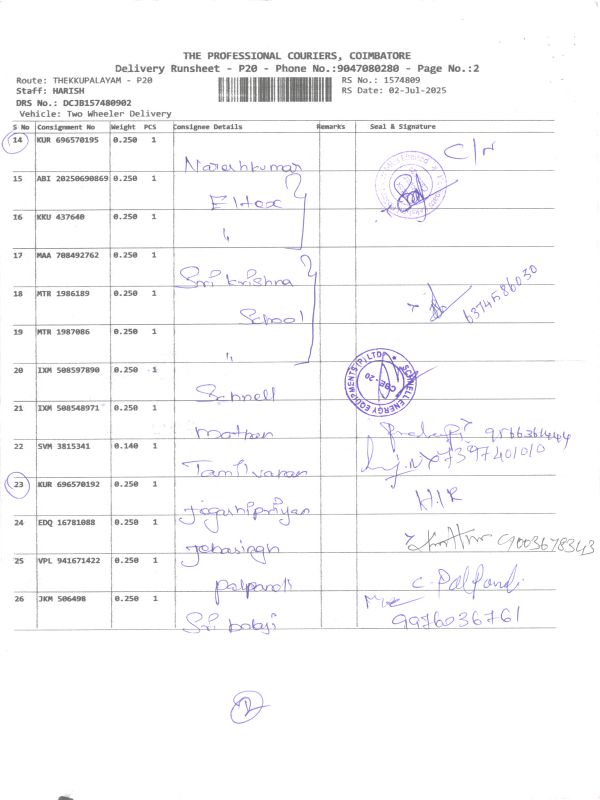 THE PROFESSIONAL COURIERS, COIMBATORE
Delivery Runsheet - P20 - Phone No.:9047080280 - Page No.:2
Route: THEKKUPALAYAM - P20 RS No.: 1574809
Staff: HARISH RS Date: 02-Jul-2025
DRS No.: DCJB157480902
Vehicle: Two Wheeler Delivery
S No Consignment No Weight PCS Consignee Details Remarks Seal & Signature
14 KUR 696570195 0.250 1 Nareshkumar
15 ABI 20250690869 0.250 1 Eltex
16 KKU 437640 0.250 1 "
17 MAA 708492762 0.250 1 Sri krishna
18 MTR 1986189 0.250 1 School 6374586030
19 MTR 1987086 0.250 1 "
20 IXM 508597890 0.250 1 Schnell SCHNELL ENERGY EQUIPMENTS (P) LTD CBE-20
21 IXM 508548971 0.250 1
22 SVM 3815341 0.140 1 Tamilvanan 7397401010
23 KUR 696570192 0.250 1
24 EDQ 16781088 0.250 1 Jebasingh 9003678343
25 VPL 941671422 0.250 1 Palpandi C. Palpandi
26 JKM 506498 0.250 1 Sri balaji 9976036761
2